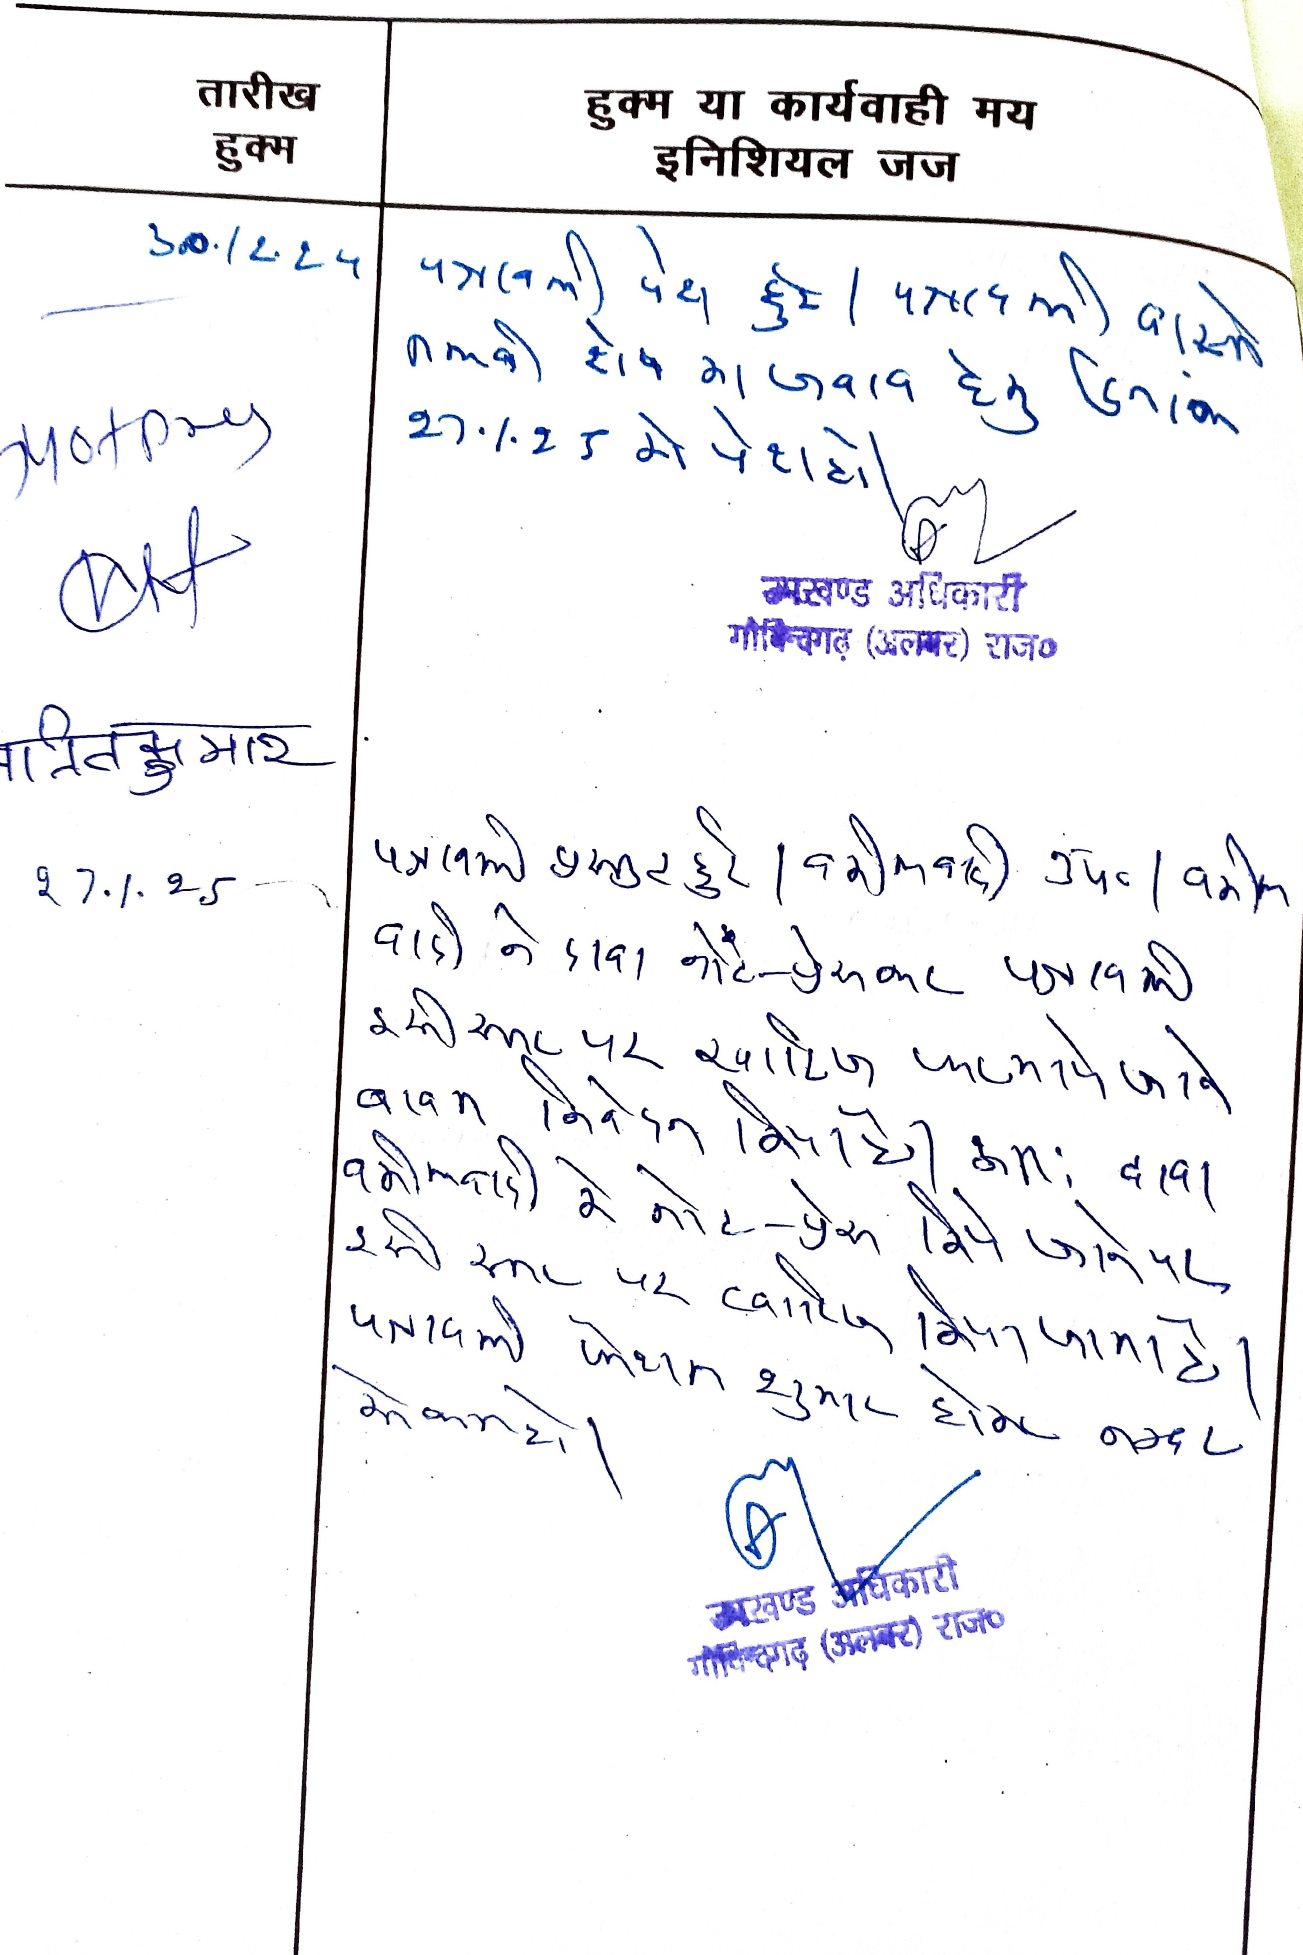 तारीख
हुक्म
हुक्म या कार्यवाही मय
इनिशियल जज
30.12.24
पत्रावली पेश हुई। पत्रावली वास्ते
तलबी शेष का जवाब हेतु दिनांक
27.1.25 को पेश हो।
Not press
उपखण्ड अधिकारी
गोविन्दगढ़ (अलवर) राज०
कुमार
27.1.25
पत्रावली प्रस्तुत हुई। वकील वादी उप०। वकील
वादी ने दावा नोट-प्रेस कर पत्रावली
इसी स्तर पर खारिज फरमाये जाने
बाबत निवेदन किया है। अतः दावा
वकील वादी के नोट-प्रेस किये जाने पर
इसी स्तर पर खारिज किया जाता है।
पत्रावली फैशल शुमार होकर नम्बर
से कम हो।
उपखण्ड अधिकारी
गोविन्दगढ़ (अलवर) राज०